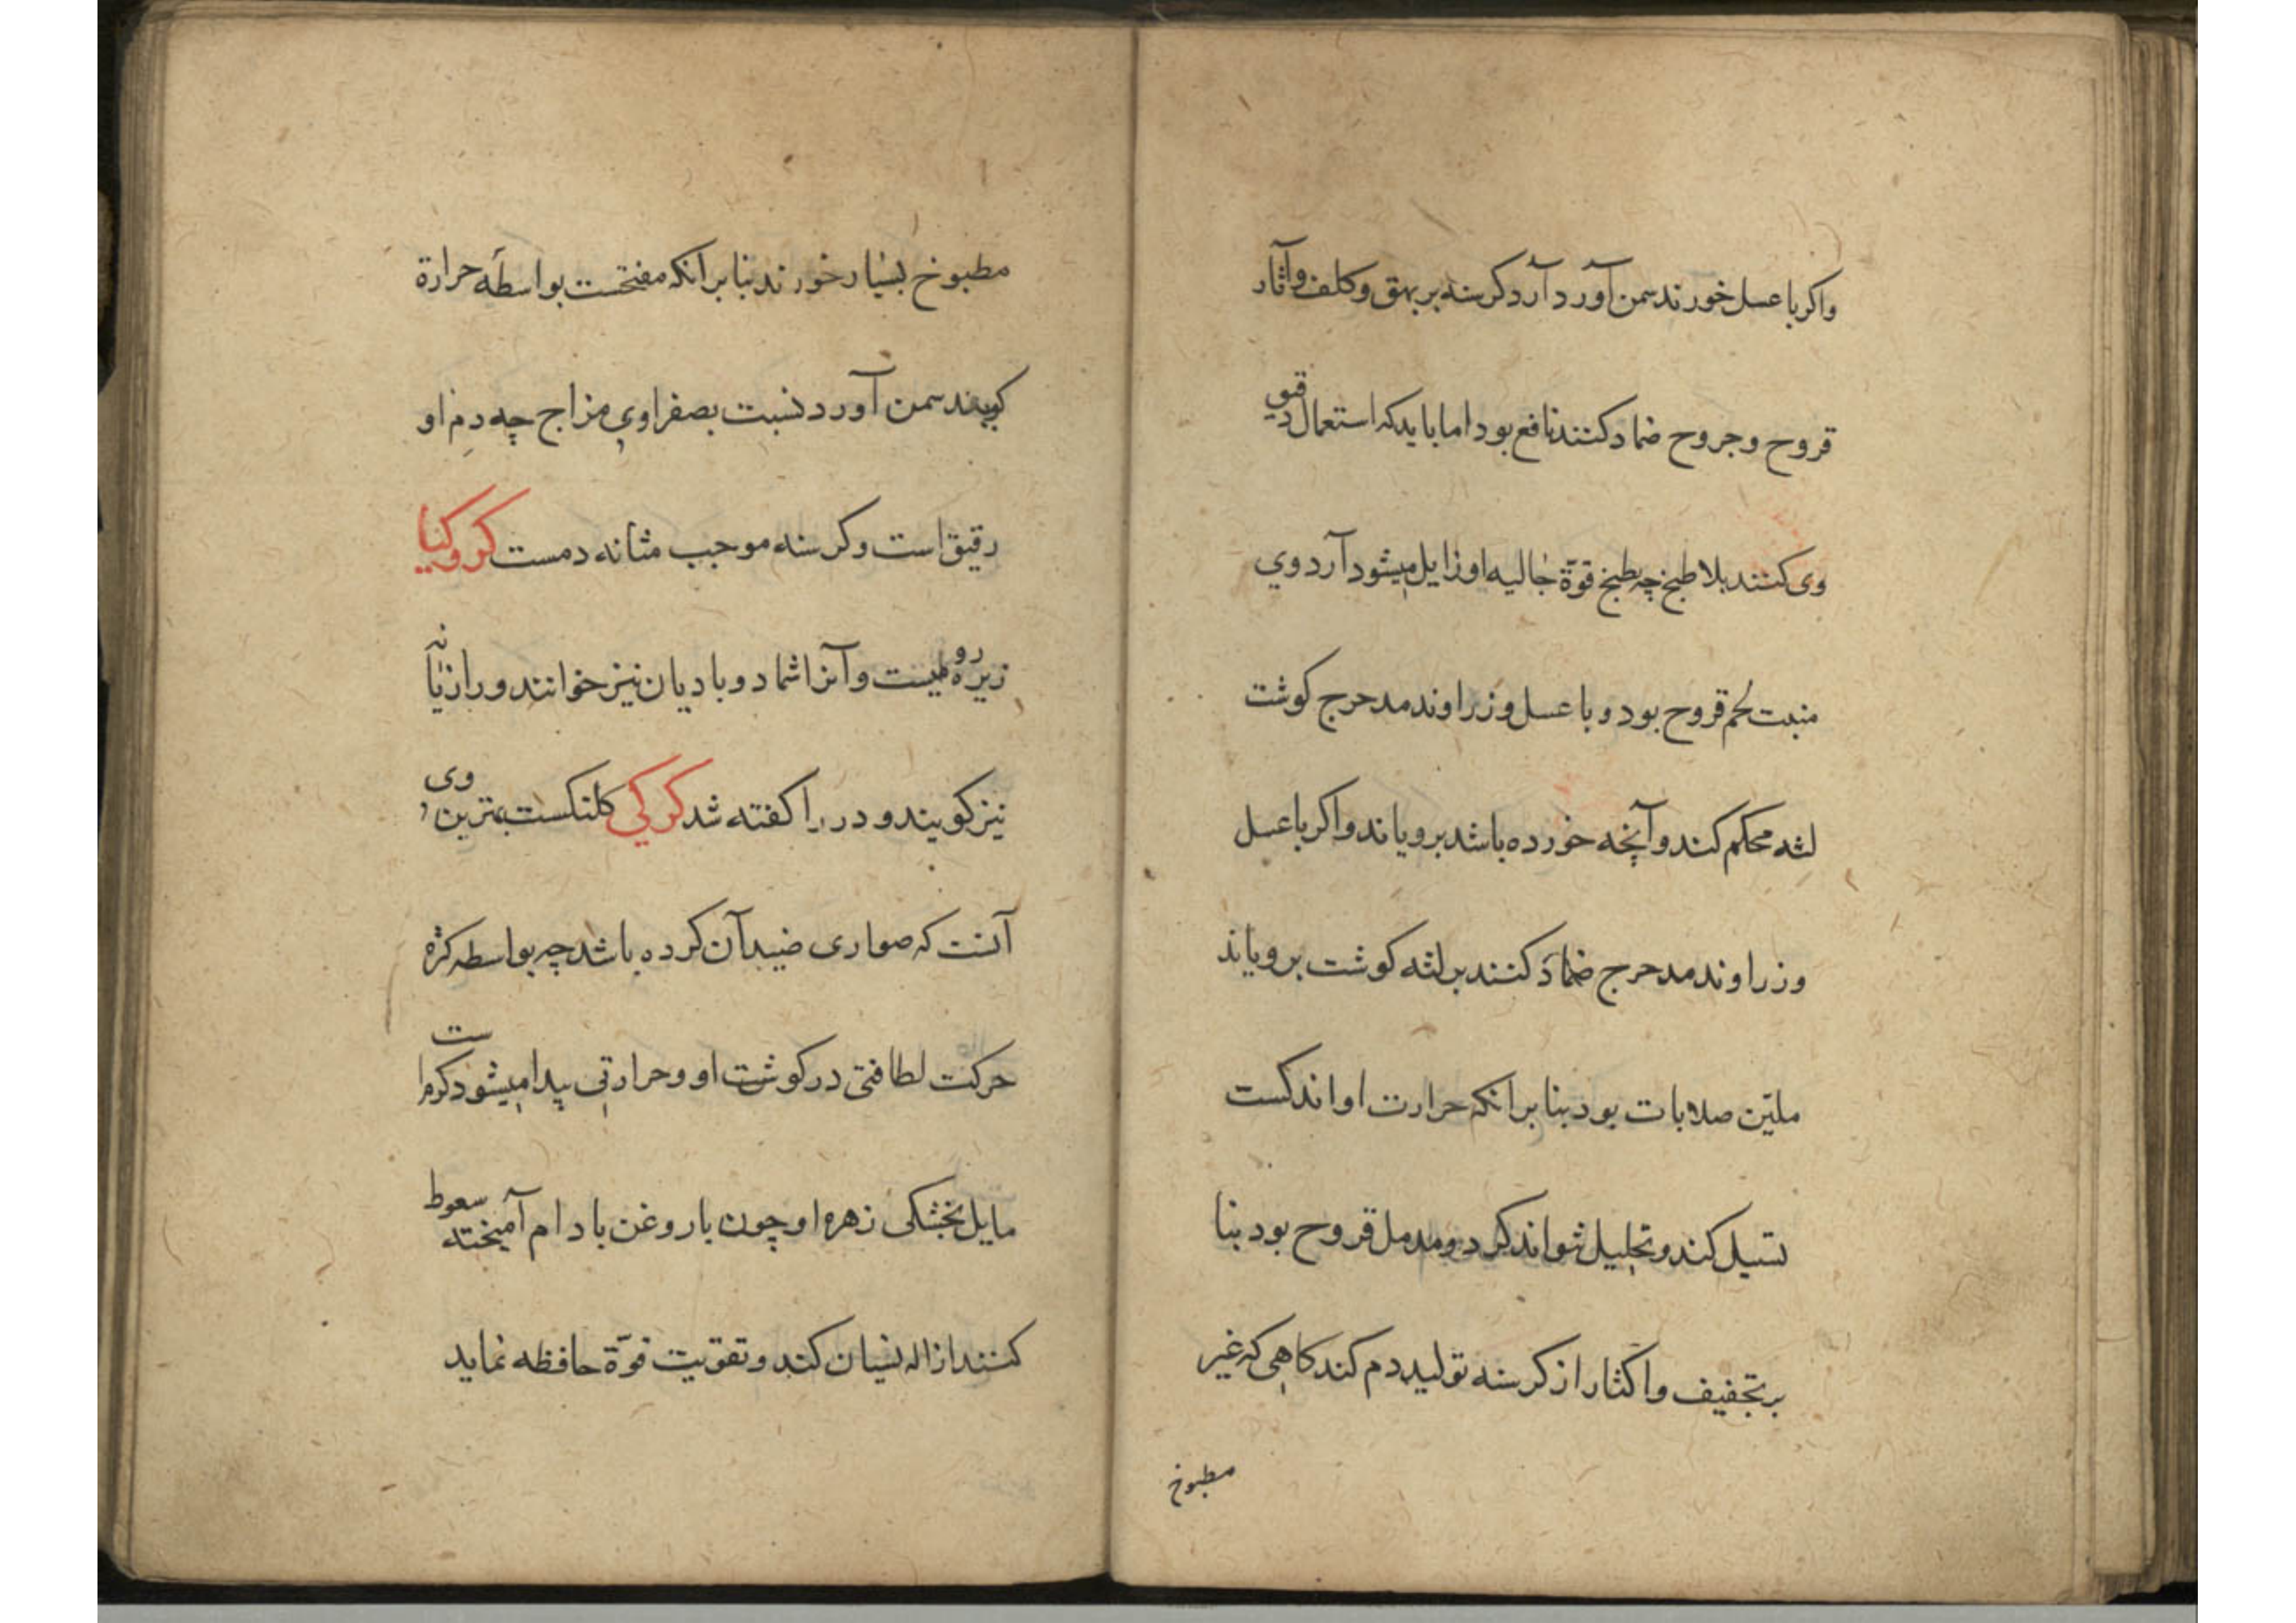 واکر با عسل خورند سمن آورد آرد کرسنه بر بهق و کلف و آثار
قروح و جروح ضماد کنند نافع بود اما باید که استعمال دقیق
وی کنند بلا طبخ چه بطبخ قوّة جالیه او زایل میشود آرد وی
منبت لحم قروح بود و با عسل و زراوند مدحرج کوشت
لثه محکم کند و آنچه خورده باشد برویاند و اکر با عسل
و زراوند مدحرج ضماد کنند بر لثه کوشت برویاند
ملیّن صلابات بود بنا بر انکه حرارت او اندکست
تسیل کند و تحلیل نتواند کرد و مدمل قروح بود بنا
بر تجفیف و اکثار از کرسنه تولید دم کند کاهی که غیر
مطبوخ
مطبوخ بسیار خورند بنا بر انکه مفتحست بواسطه حرارة
کویند سمن آورد نسبت بصفراوی مزاج چه دم او
رقیق است و کرسنه موجب مثانه دمست کرویا
زیره رومیست و آنرا شاد و بادیان نیز خوانند و رازیانه
نیز کویند و در را کفته شد کرکی کلنکست بهترین وی
آنست که صواری صید آن کرده باشد چه بواسطه کثره
حرکت لطافتی در کوشت او و حرارتی پیدا میشود کرم است
مایل بخشکی زهره او چون با روغن بادام آمیخته سعوط
کنند ازاله نسیان کند و تقویت قوّة حافظه نماید